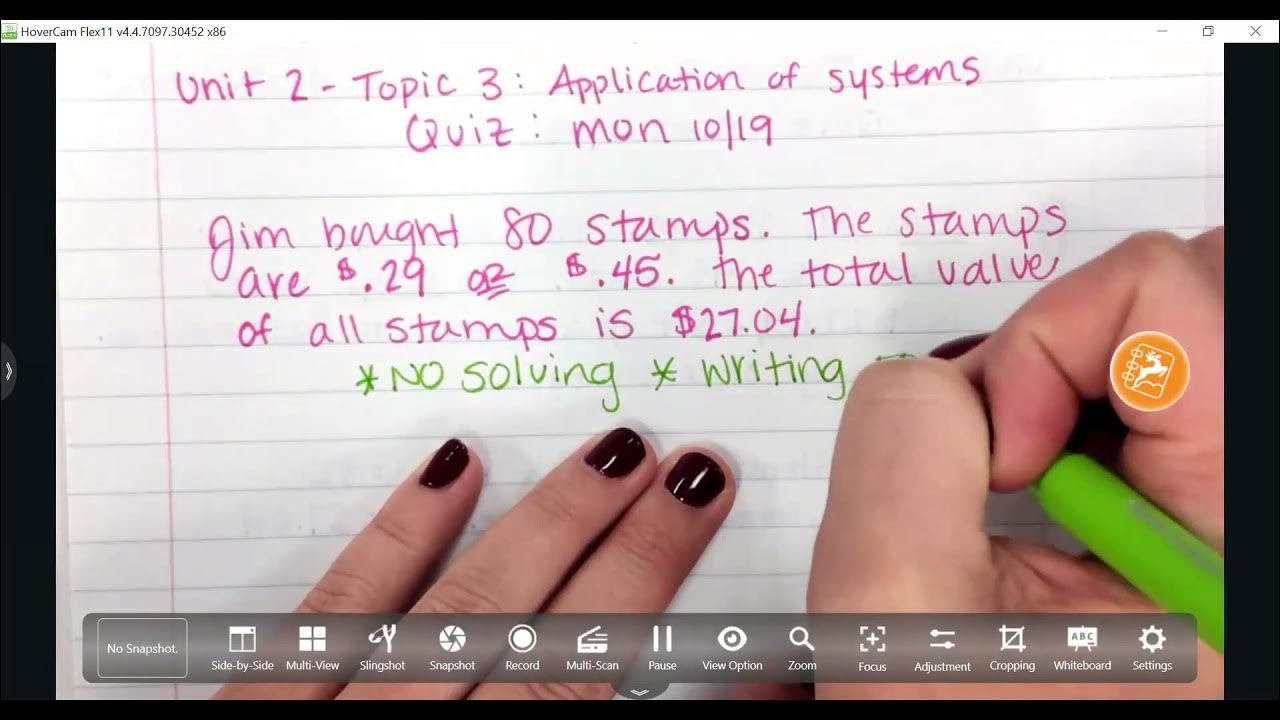 HoverCam Flex11 v4.4.7097.30452 x86
Unit 2 - Topic 3: Application of systems
Quiz: mon 10/19
Jim bought 80 stamps. The stamps
are $.29 or $.45. The total value
of all stamps is $27.04.
*NO solving * writing
No Snapshot.
Side-by-Side Multi-View Slingshot Snapshot Record Multi-Scan Pause View Option Zoom Focus Adjustment Cropping Whiteboard Settings
ABC